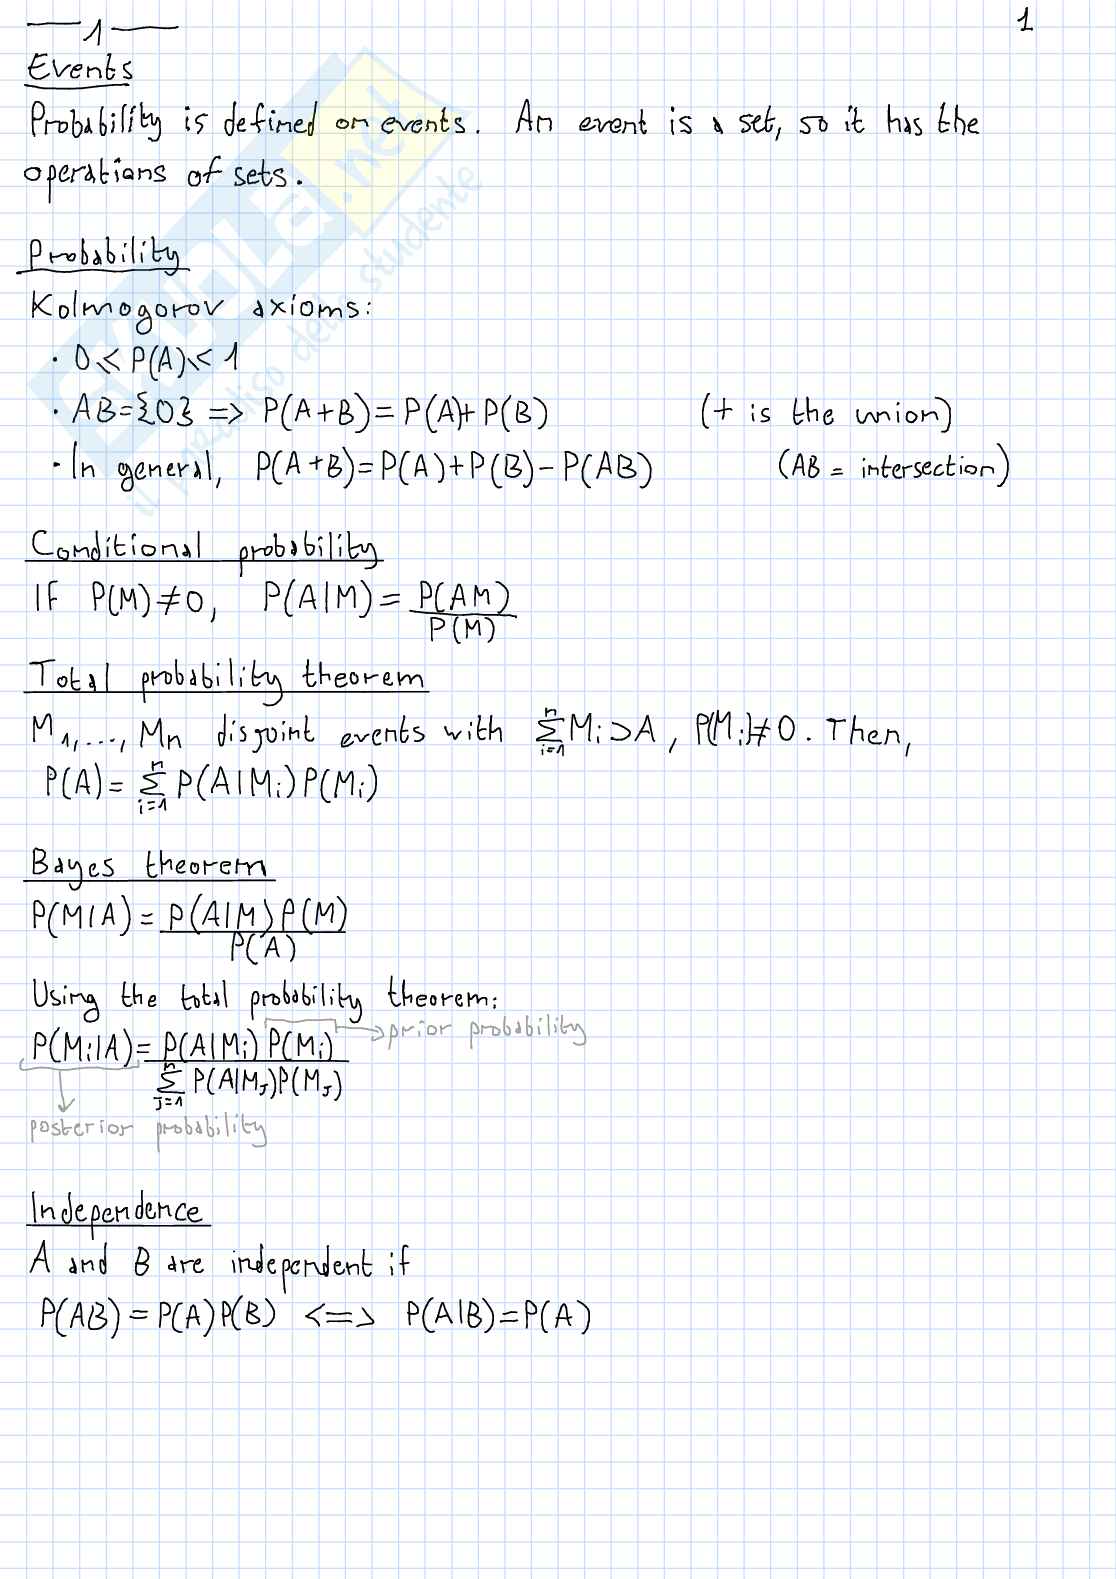 1
1
Events
Probability is defined on events. An event is a set, so it has the
operations of sets.
Probability
Kolmogorov axioms:
· 0 ≤ P(A) ≤ 1
· AB={0} => P(A+B)= P(A)+P(B) (+ is the union)
· In general, P(A+B)=P(A)+P(B)-P(AB) (AB = intersection)
Conditional probability
IF P(M)≠0, P(A|M) = P(AM)/P(M)
Total probability theorem
M₁,..., Mn disjoint events with ∑ⁿᵢ₌₁ Mᵢ ⊃ A, P(Mᵢ)≠0. Then,
P(A) = ∑ⁿᵢ₌₁ P(A|Mᵢ) P(Mᵢ)
Bayes theorem
P(M|A) = P(A|M) P(M)/P(A)
Using the total probability theorem:
P(Mᵢ|A) = P(A|Mᵢ) P(Mᵢ)/∑ⁿⱼ₌₁ P(A|Mⱼ)P(Mⱼ) → prior probability
posterior probability
Independence
A and B are independent if
P(AB) = P(A)P(B) <=> P(A|B)=P(A)
SKUOLA.net
il paradiso dello studente